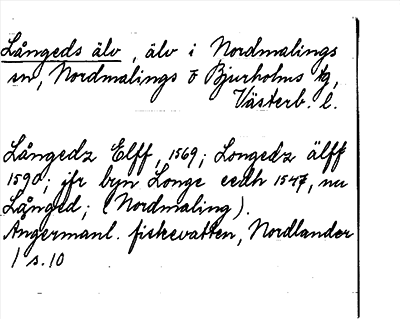 Långeds älv, älv i Nordmalings
sn, Nordmalings o Bjurholms tg,
Västerb. l.
Långedz Elff, 1569; Longedz älff
1590; jfr byn Longe eedh 1547, nu
Långed; (Nordmaling).
Ångermanl. fiskevatten, Nordlander
1 s. 10